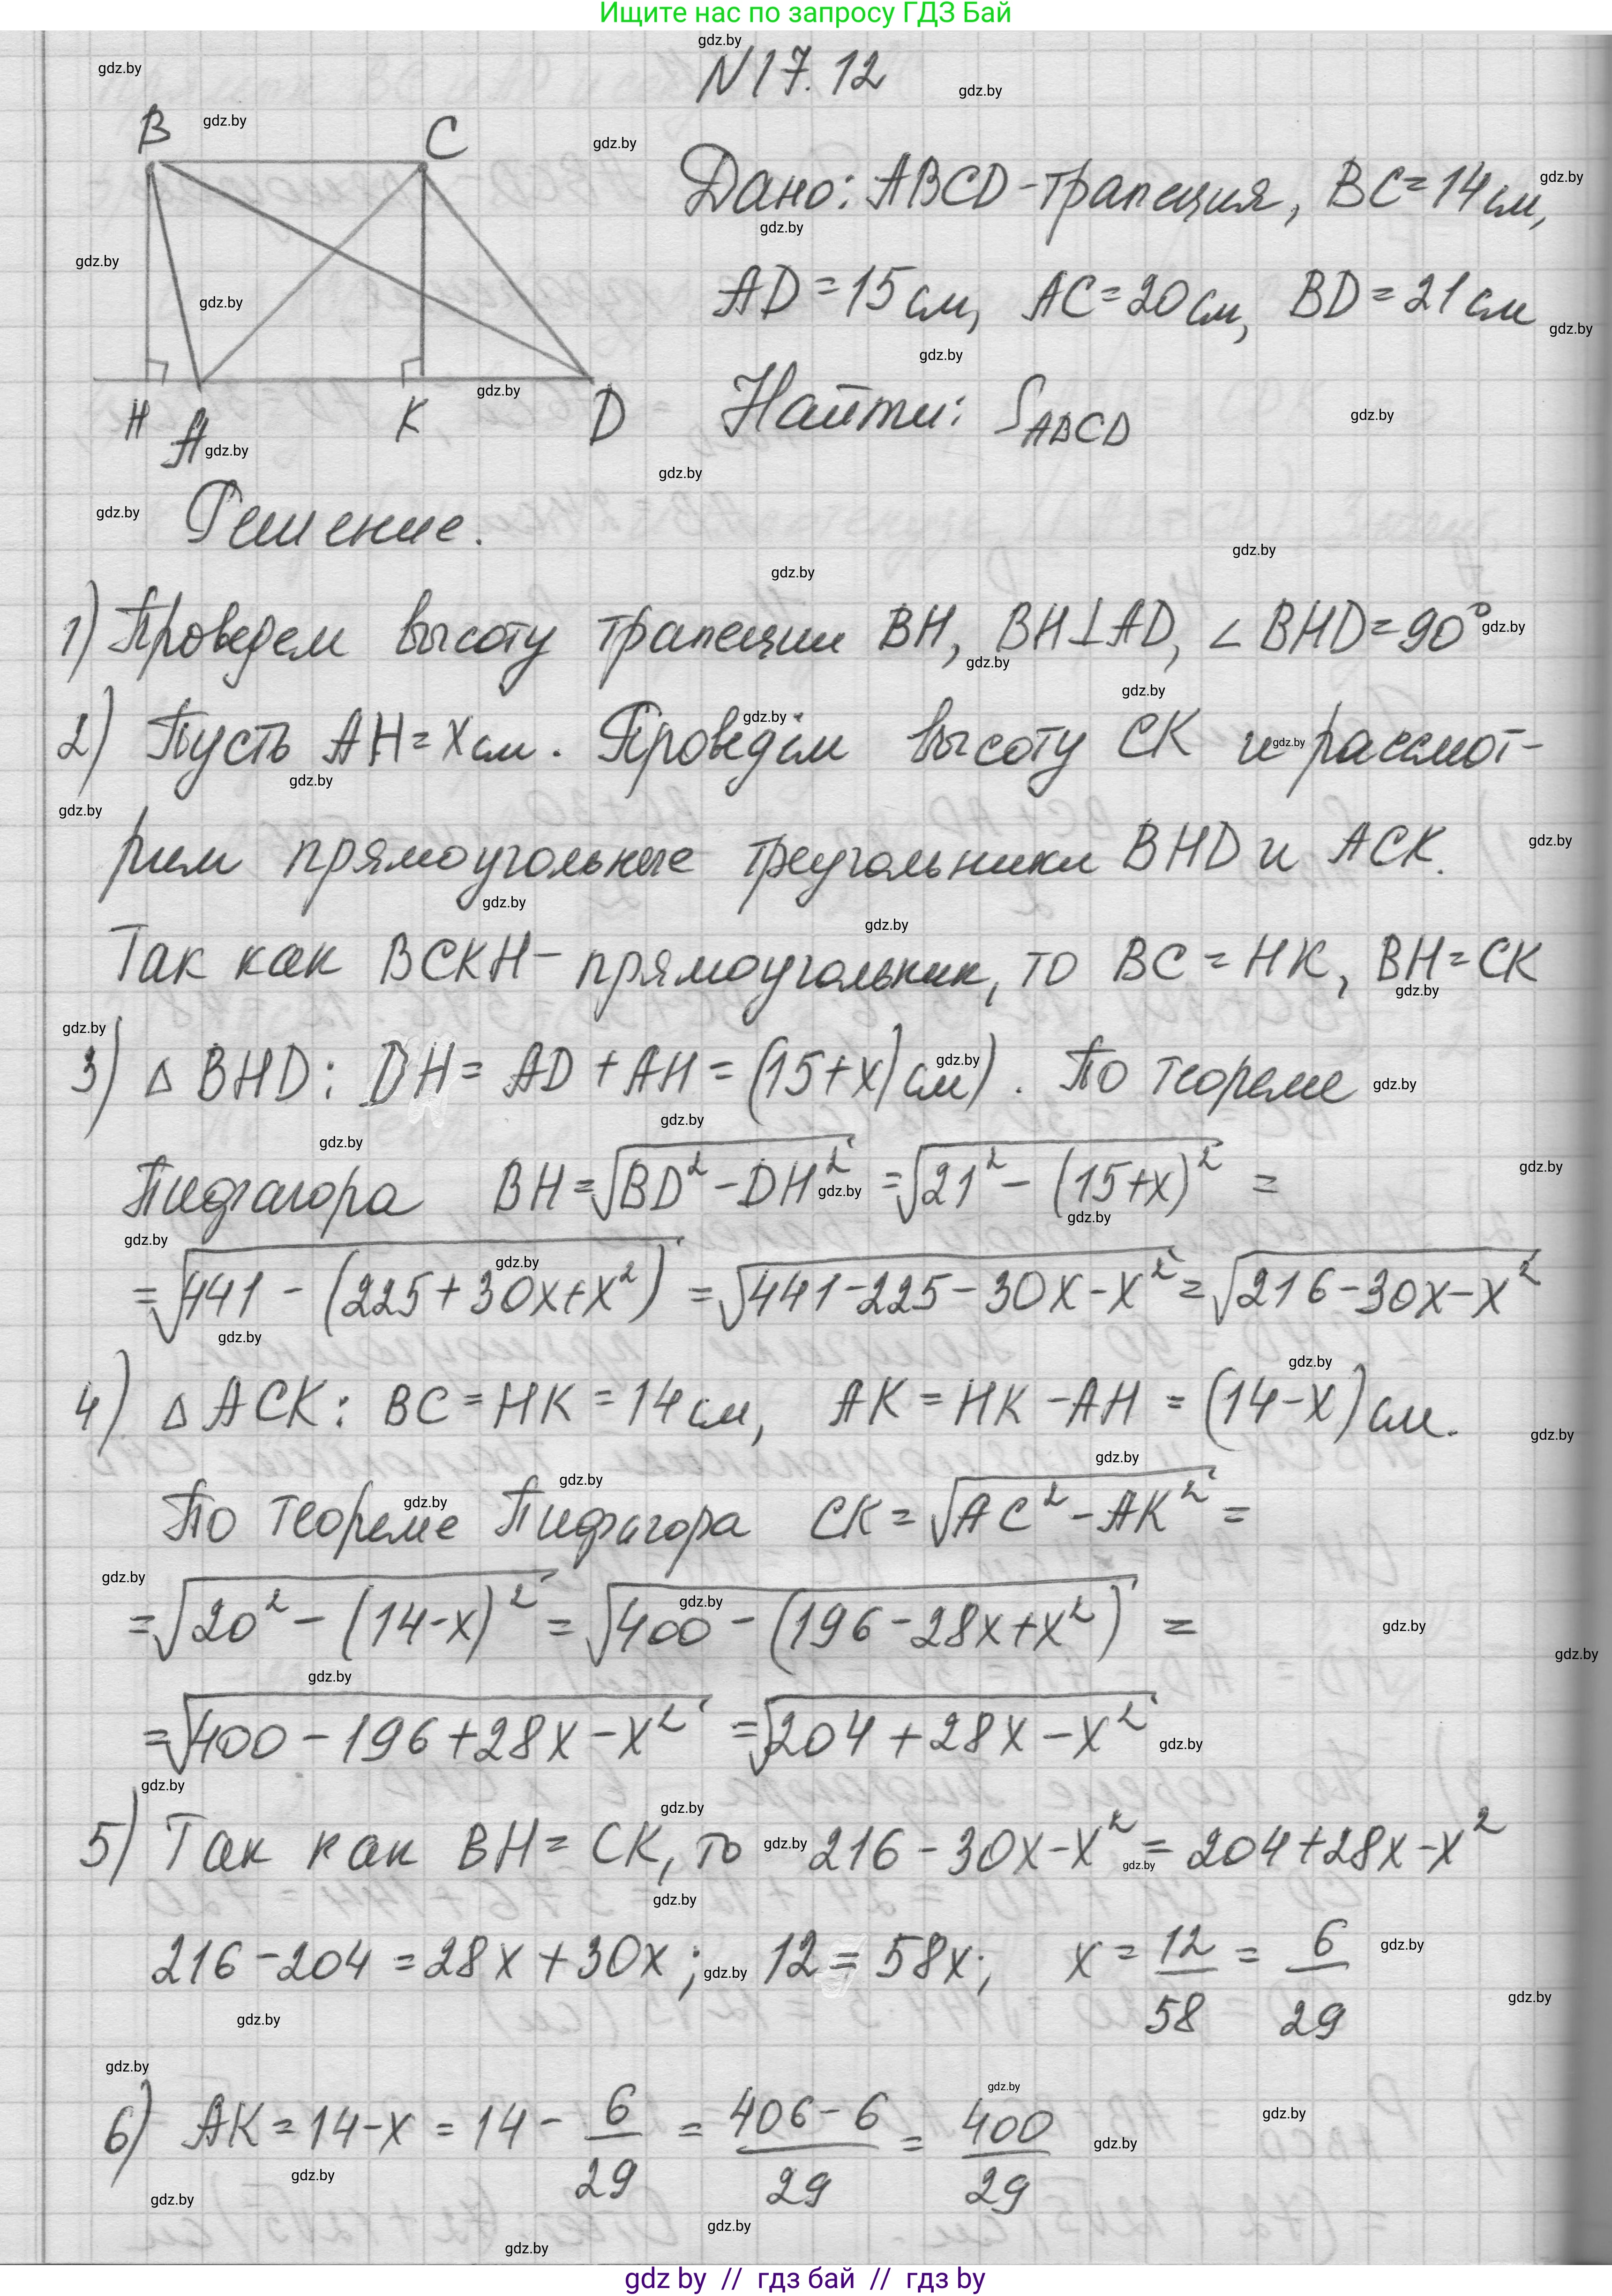 Ищите нас по запросу ГДЗ Бай
N17.12
B C
H A K D
Дано: ABCD-трапеция, BC=14см,
AD=15см, AC=20см, BD=21см
Найти: S_ABCD
Решение.
1) Проведем высоту трапеции BH, BH⊥AD, ∠BHD=90°
2) Пусть AH=xсм. Проведём высоту CK и рассмот-
рим прямоугольные треугольники BHD и ACK.
Так как BCKH-прямоугольник, то BC=HK, BH=CK
3) △BHD: DH=AD+AH=(15+x)см). По теореме
Пифагора BH=√(BD²-DH²)=√(21²-(15+x)²)=
=√(441-(225+30x+x²))=√(441-225-30x-x²)=√(216-30x-x²)
4) △ACK: BC=HK=14см, AK=HK-AH=(14-x)см.
По теореме Пифагора CK=√(AC²-AK²)=
=√(20²-(14-x)²)=√(400-(196-28x+x²))=
=√(400-196+28x-x²)=√(204+28x-x²)
5) Так как BH=CK, то 216-30x-x²=204+28x-x²
216-204=28x+30x; 12=58x; x=12/58=6/29
6) AK=14-x=14-6/29=(406-6)/29=400/29
gdz by // гдз бай // гдз by